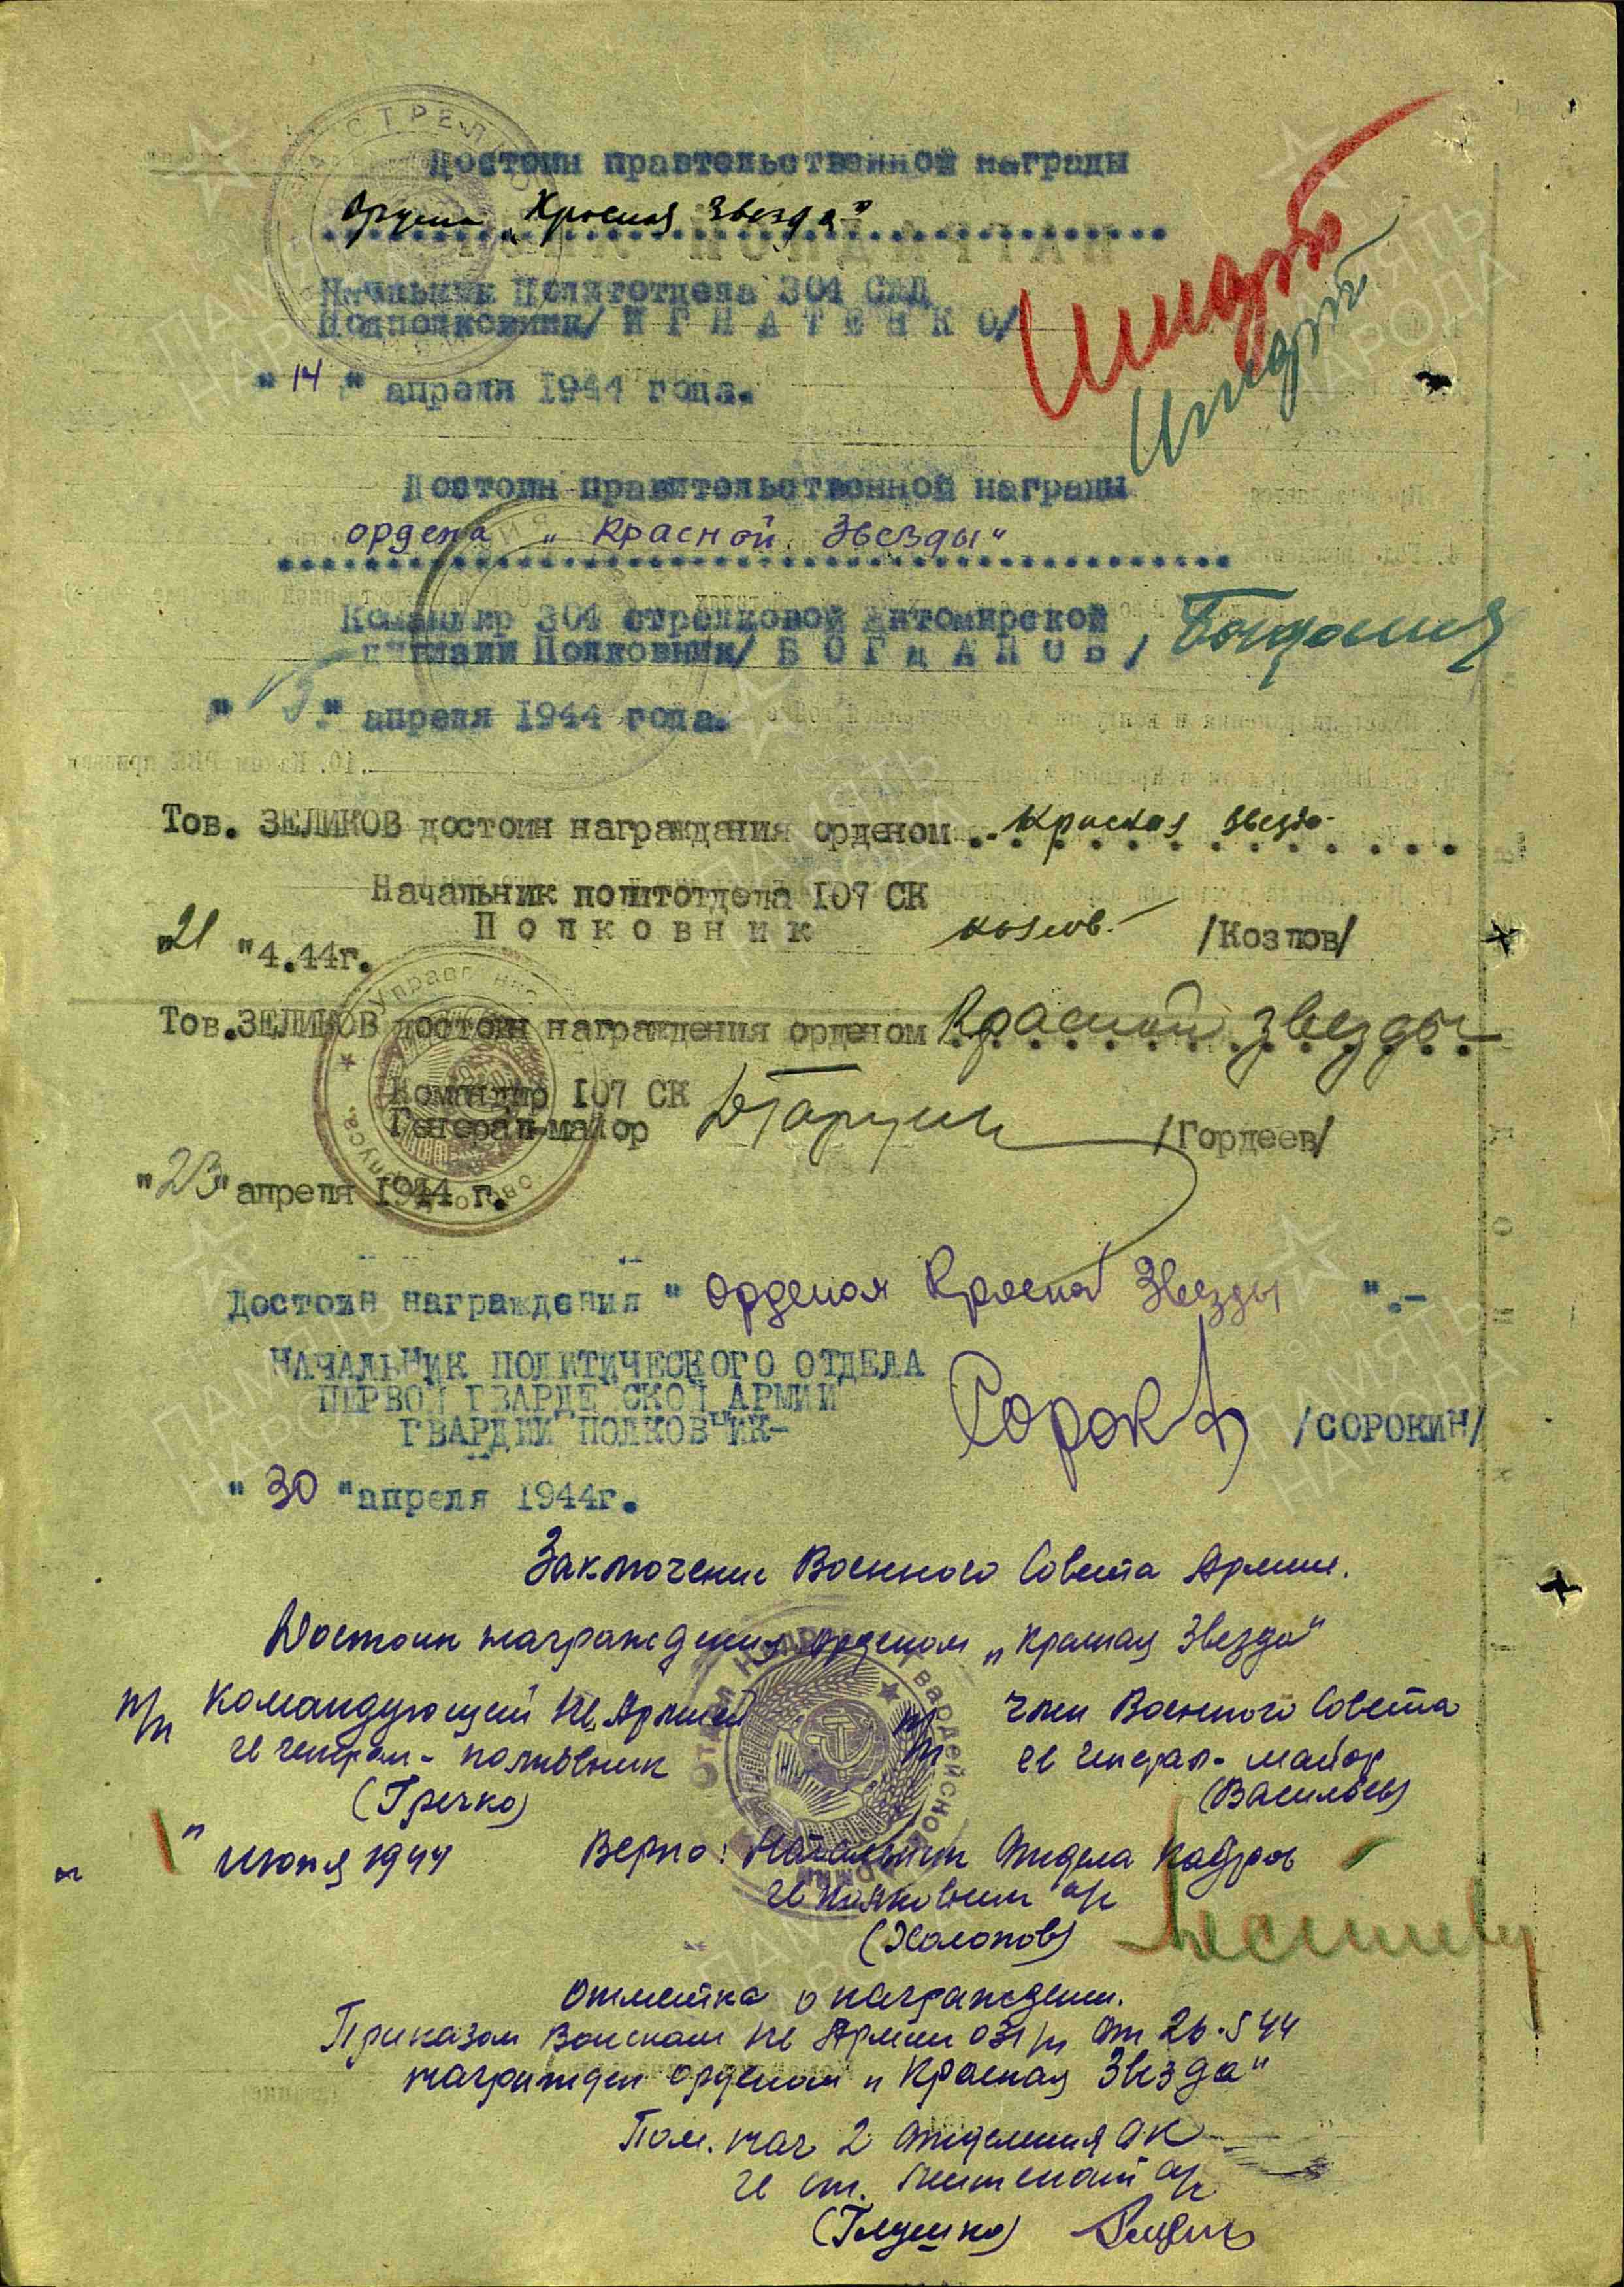 Достоин правтельственной награды
Ордена „Красная Звезда"
Начальник Политотдела 304 СЖД
Подполковник/ И Г Н А Т Е Н К О/
" 14 " апреля 1944 года.
Достоин правительственной награды
ордена „Красной Звезды"
Командир 304 стрелковой Житомирской
дивизии Полковник/ Б О Г Д А Н О В /
" " апреля 1944 года.
Тов. ЗЕЛИКОВ достоин награждания орденом Красная Звезда
Начальник политотдела 107 СК
П о л к о в н и к Козлов /Козлов/
"21 "4.44г.
Тов.ЗЕЛИКОВ достоин награждения орденом Красной Звезды
Командир 107 СК
Генерал-майор /Гордеев/
"23"апреля 1944 г.
Достоин награждения " Орденом Красной Звезды ".-
НАЧАЛЬНИК ПОЛИТИЧЕСКОГО ОТДЕЛА
ПЕРВОЙ ГВАРДЕЙСКОЙ АРМИИ
ГВАРДИИ ПОЛКОВНИК-
/СОРОКИН/
" 30 "апреля 1944г.
Заключение Военного Совета Армии.
Достоин награждения орденом „Красная Звезда"
п/п Командующий 1 гв. Армией п/п Член Военного Совета
гв генерал-полковник гв генерал-майор
(Гречко) (Васильев)
" " июня 1944 Верно: Начальник Отдела Кадров
гв полковник а/с
(Холопов)
Отметка о награждении.
Приказом Войскам 1 гв Армии 031/н от 26.5 44
награжден орденом „Красная Звезда"
Пом. нач 2 отделения ОК
гв ст. лейтенант а/с
(Глушко)